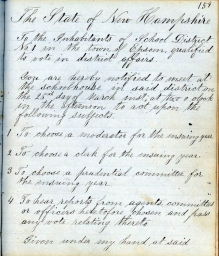 159
The State of New Hampshire
To the Inhabitants of School District
No 1 in the town of Epsom, qualified
to vote in district affairs.
You are hereby notified to meet at
the schoolhouse in said district on
the 22nd day of March inst, at two o'clock
in the afternoon to act upon the
following subjects.
1 To choose a moderator for the ensuing year
2 To choose a clerk for the ensuing year.
3 To choose a prudential committee for
the ensuing year
4 To hear reports from agents, committees
or officers heretofore chosen and pass
any vote relating thereto
Given under my hand at said